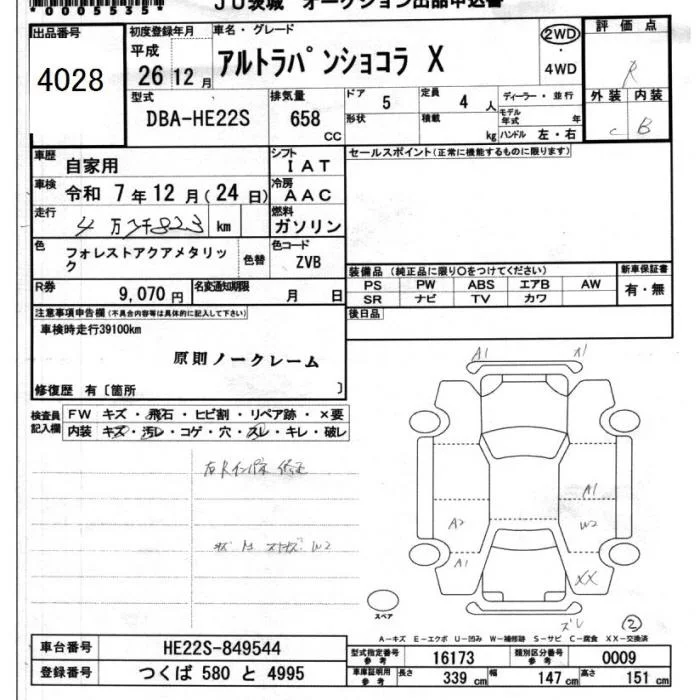 *00055354*
JU茨城 オークション出品申込書
出品番号
4028
初度登録年月
平成
26 12 月
車名・グレード
アルトラパンショコラ X
2WD
・
4WD
評価点
R
外装 内装
C B
型式
DBA-HE22S
排気量
658 cc
ドア 5
定員 4 人
ディーラー・並行
形状
積載 kg
モデル年式 年
ハンドル 左・右
車歴
自家用
シフト
I A T
車検
令和 7 年 12 月(24 日)
冷房
A A C
走行
km
燃料
ガソリン
色
フォレストアクアメタリック
色替
色コード
ZVB
R券
9,070 円
名変通知期限
月 日
セールスポイント(正常に機能するものに限ります)
装備品 (純正品に限り○をつけてください)
新車保証書
PS PW ABS エアB AW
有・無
SR ナビ TV カワ
後日品
注意事項申告欄(不具合内容等は具体的に記入して下さい)
車検時走行39100km
原則ノークレーム
修復歴 有〔箇所 〕
検査員記入欄
FW キズ・飛石・ヒビ割・リペア跡・×要
内装 キズ・汚レ・コゲ・穴・スレ・キレ・破レ
A1 A1
A1
A2 W2
A1 XX
スペア
ズレ
②
A-キズ E-エクボ U-凹み W-補修跡 S-サビ C-腐食 XX-交換済
車台番号
HE22S-849544
型式指定番号 参考
16173
類別区分番号 参考
0009
登録番号
つくば 580 と 4995
車庫証明用 参考
長さ 339 cm
幅 147 cm
高さ 151 cm